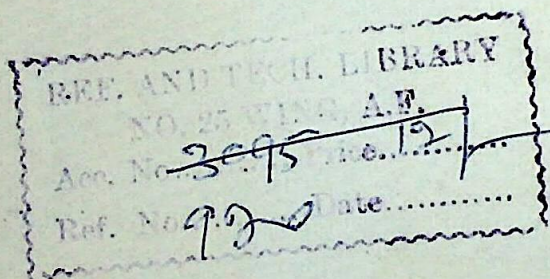 REF. AND TECH. LIBRARY
NO. 25 WING, A.F.
Acc. No. 3595 Price. 12/-
Ref. No. 920 Date............